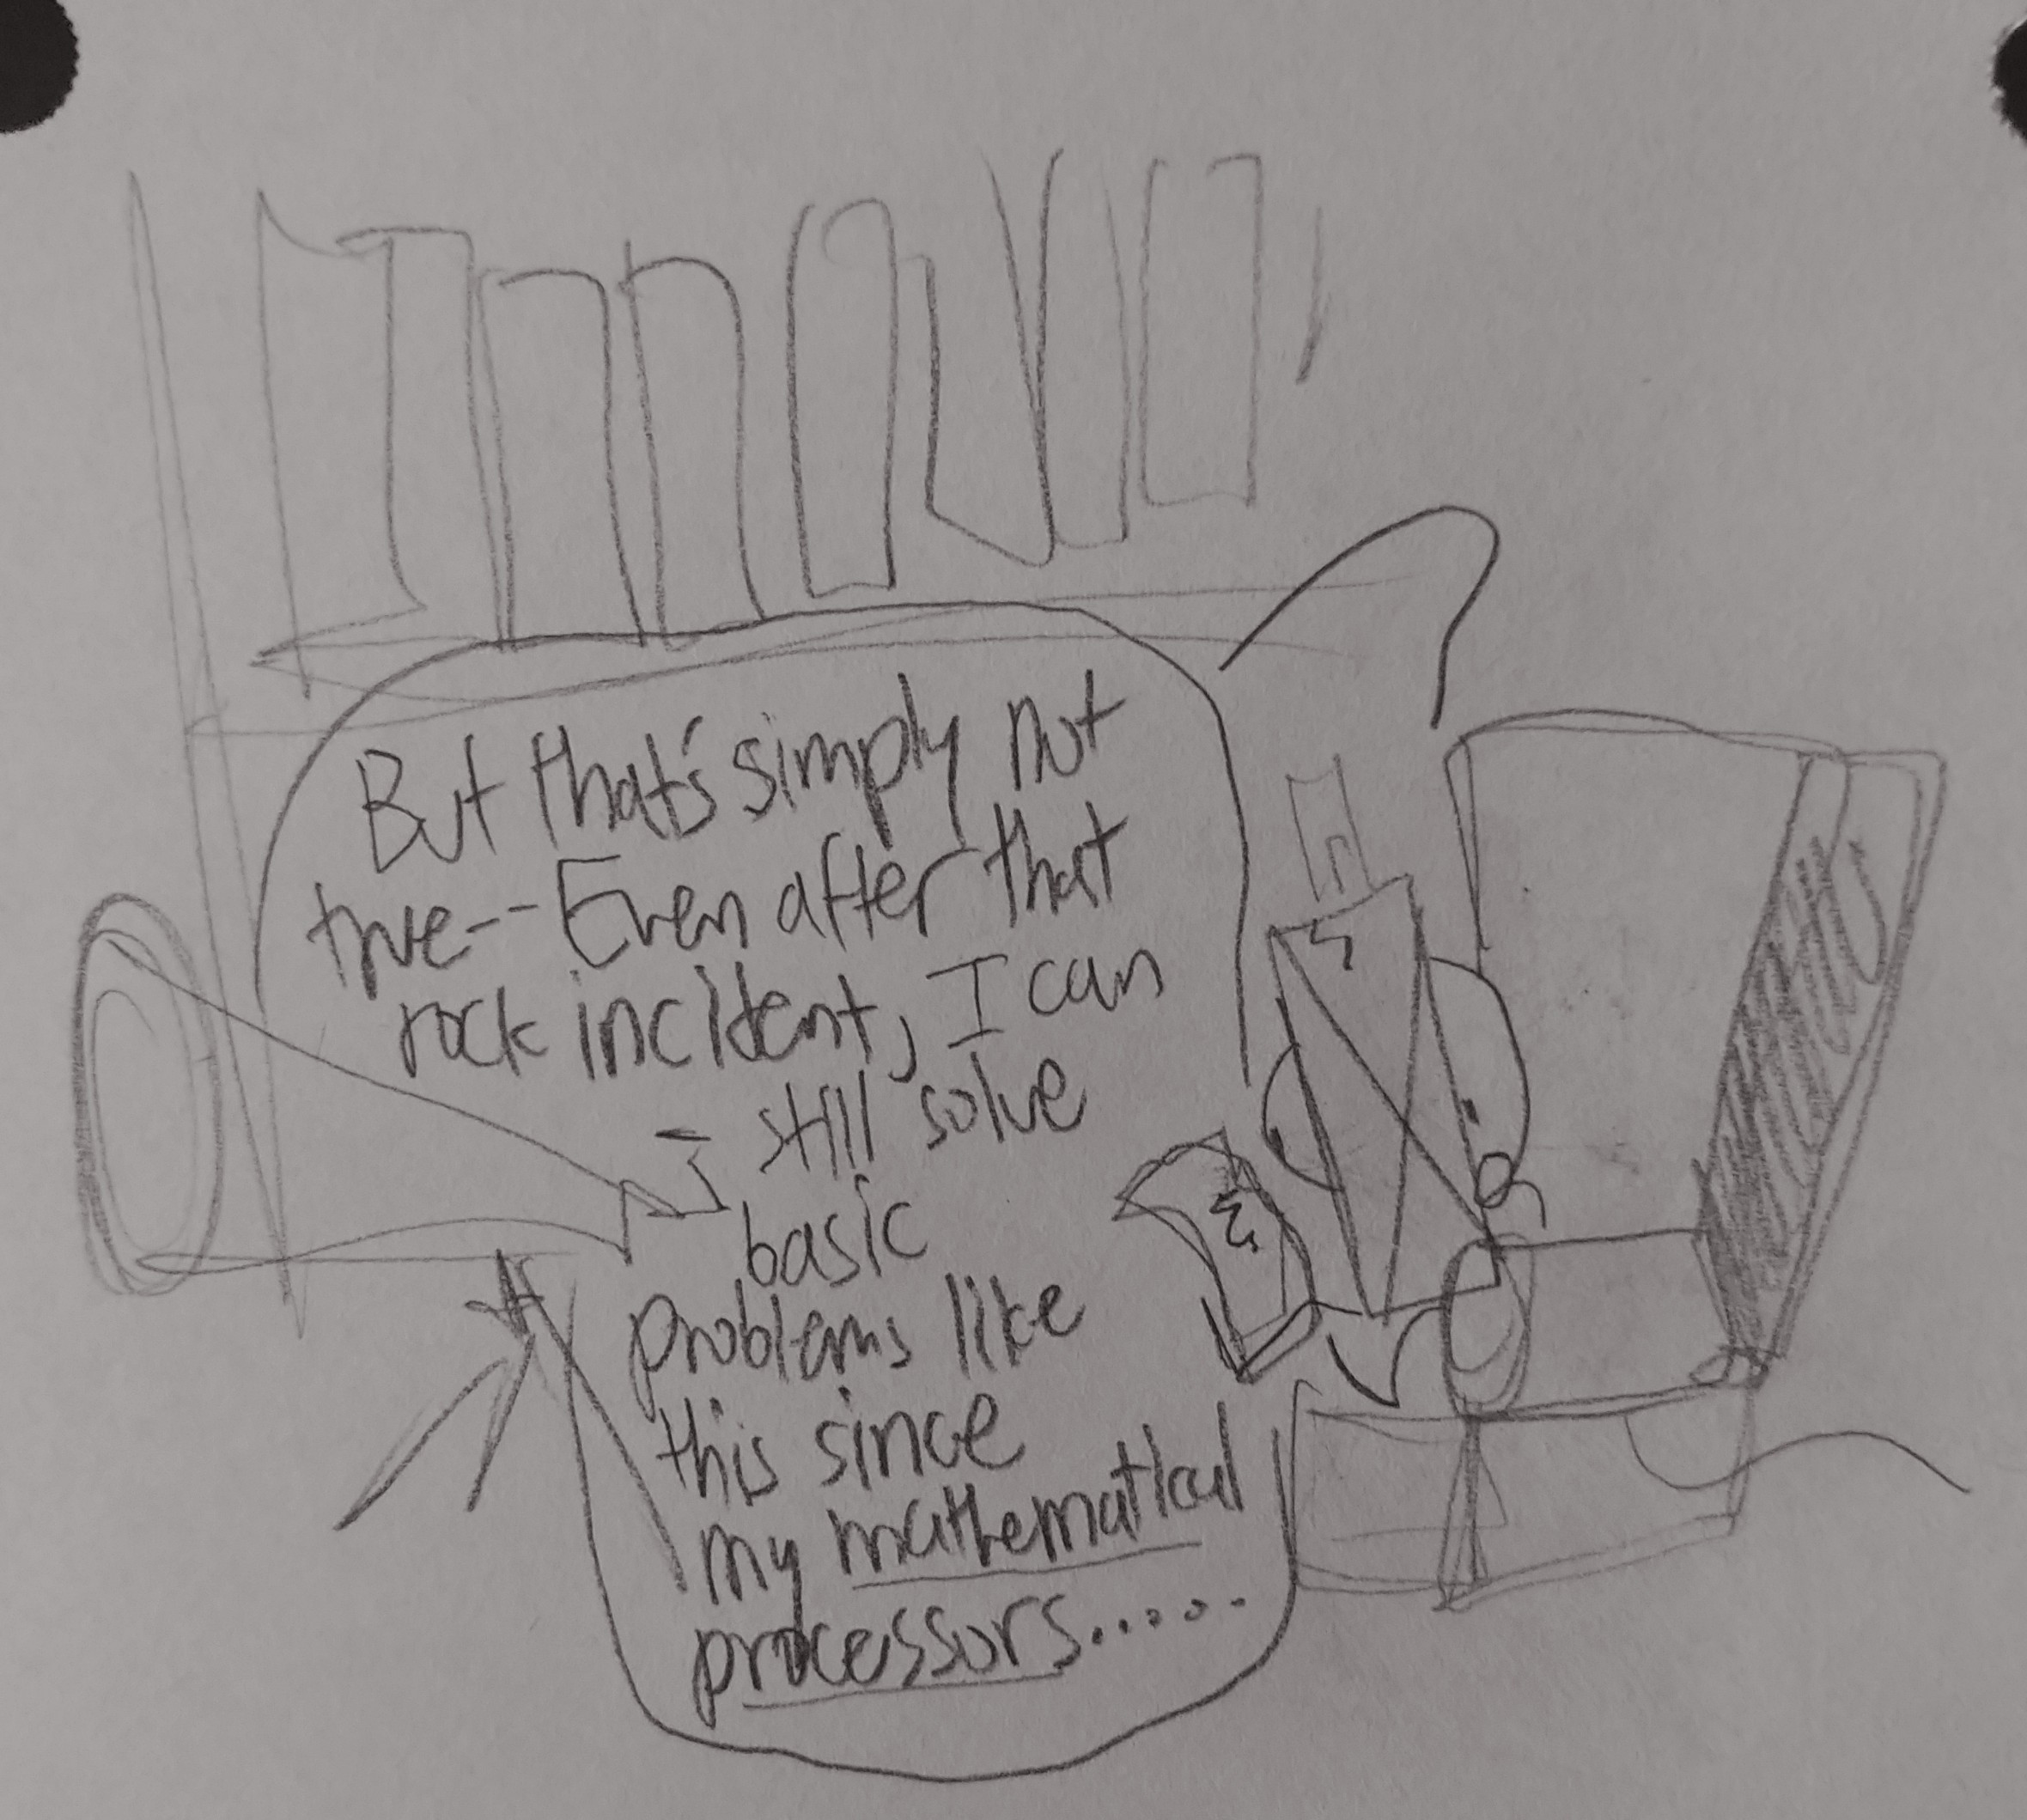 But that's simply not
true--Even after that
rock incident, I can
still solve
basic
problems like
this since
my mathematical
processors......